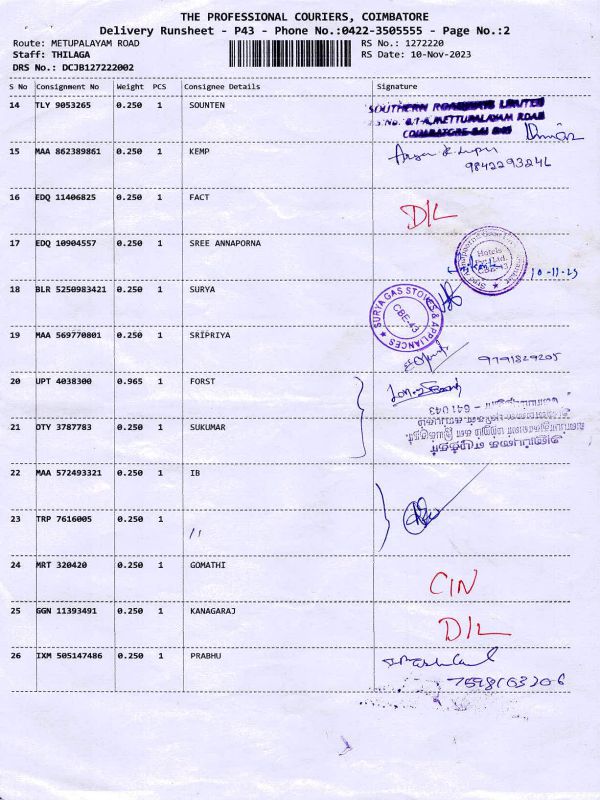 THE PROFESSIONAL COURIERS, COIMBATORE
Delivery Runsheet - P43 - Phone No.:0422-3505555 - Page No.:2
Route: METUPALAYAM ROAD RS No.: 1272220
Staff: THILAGA RS Date: 10-Nov-2023
DRS No.: DCJB127222002
S No Consignment No Weight PCS Consignee Details Signature
14 TLY 9053265 0.250 1 SOUNTEN
SOUTHERN ROADWAYS LIMITED
METTUPALAYAM ROAD
15 MAA 862389861 0.250 1 KEMP
16 EDQ 11406825 0.250 1 FACT D/L
17 EDQ 10904557 0.250 1 SREE ANNAPORNA
Hotels Pvt Ltd. CBE-43 10-11-23
18 BLR 5250983421 0.250 1 SURYA
SURYA GAS STOVES & APPLIANCES CBE-43
19 MAA 569770801 0.250 1 SRIPRIYA 9791829205
20 UPT 4038300 0.965 1 FORST
21 OTY 3787783 0.250 1 SUKUMAR
641 043
22 MAA 572493321 0.250 1 IB
23 TRP 7616005 0.250 1 11
24 MRT 320420 0.250 1 GOMATHI C/N
25 GGN 11393491 0.250 1 KANAGARAJ D/L
26 IXM 505147486 0.250 1 PRABHU